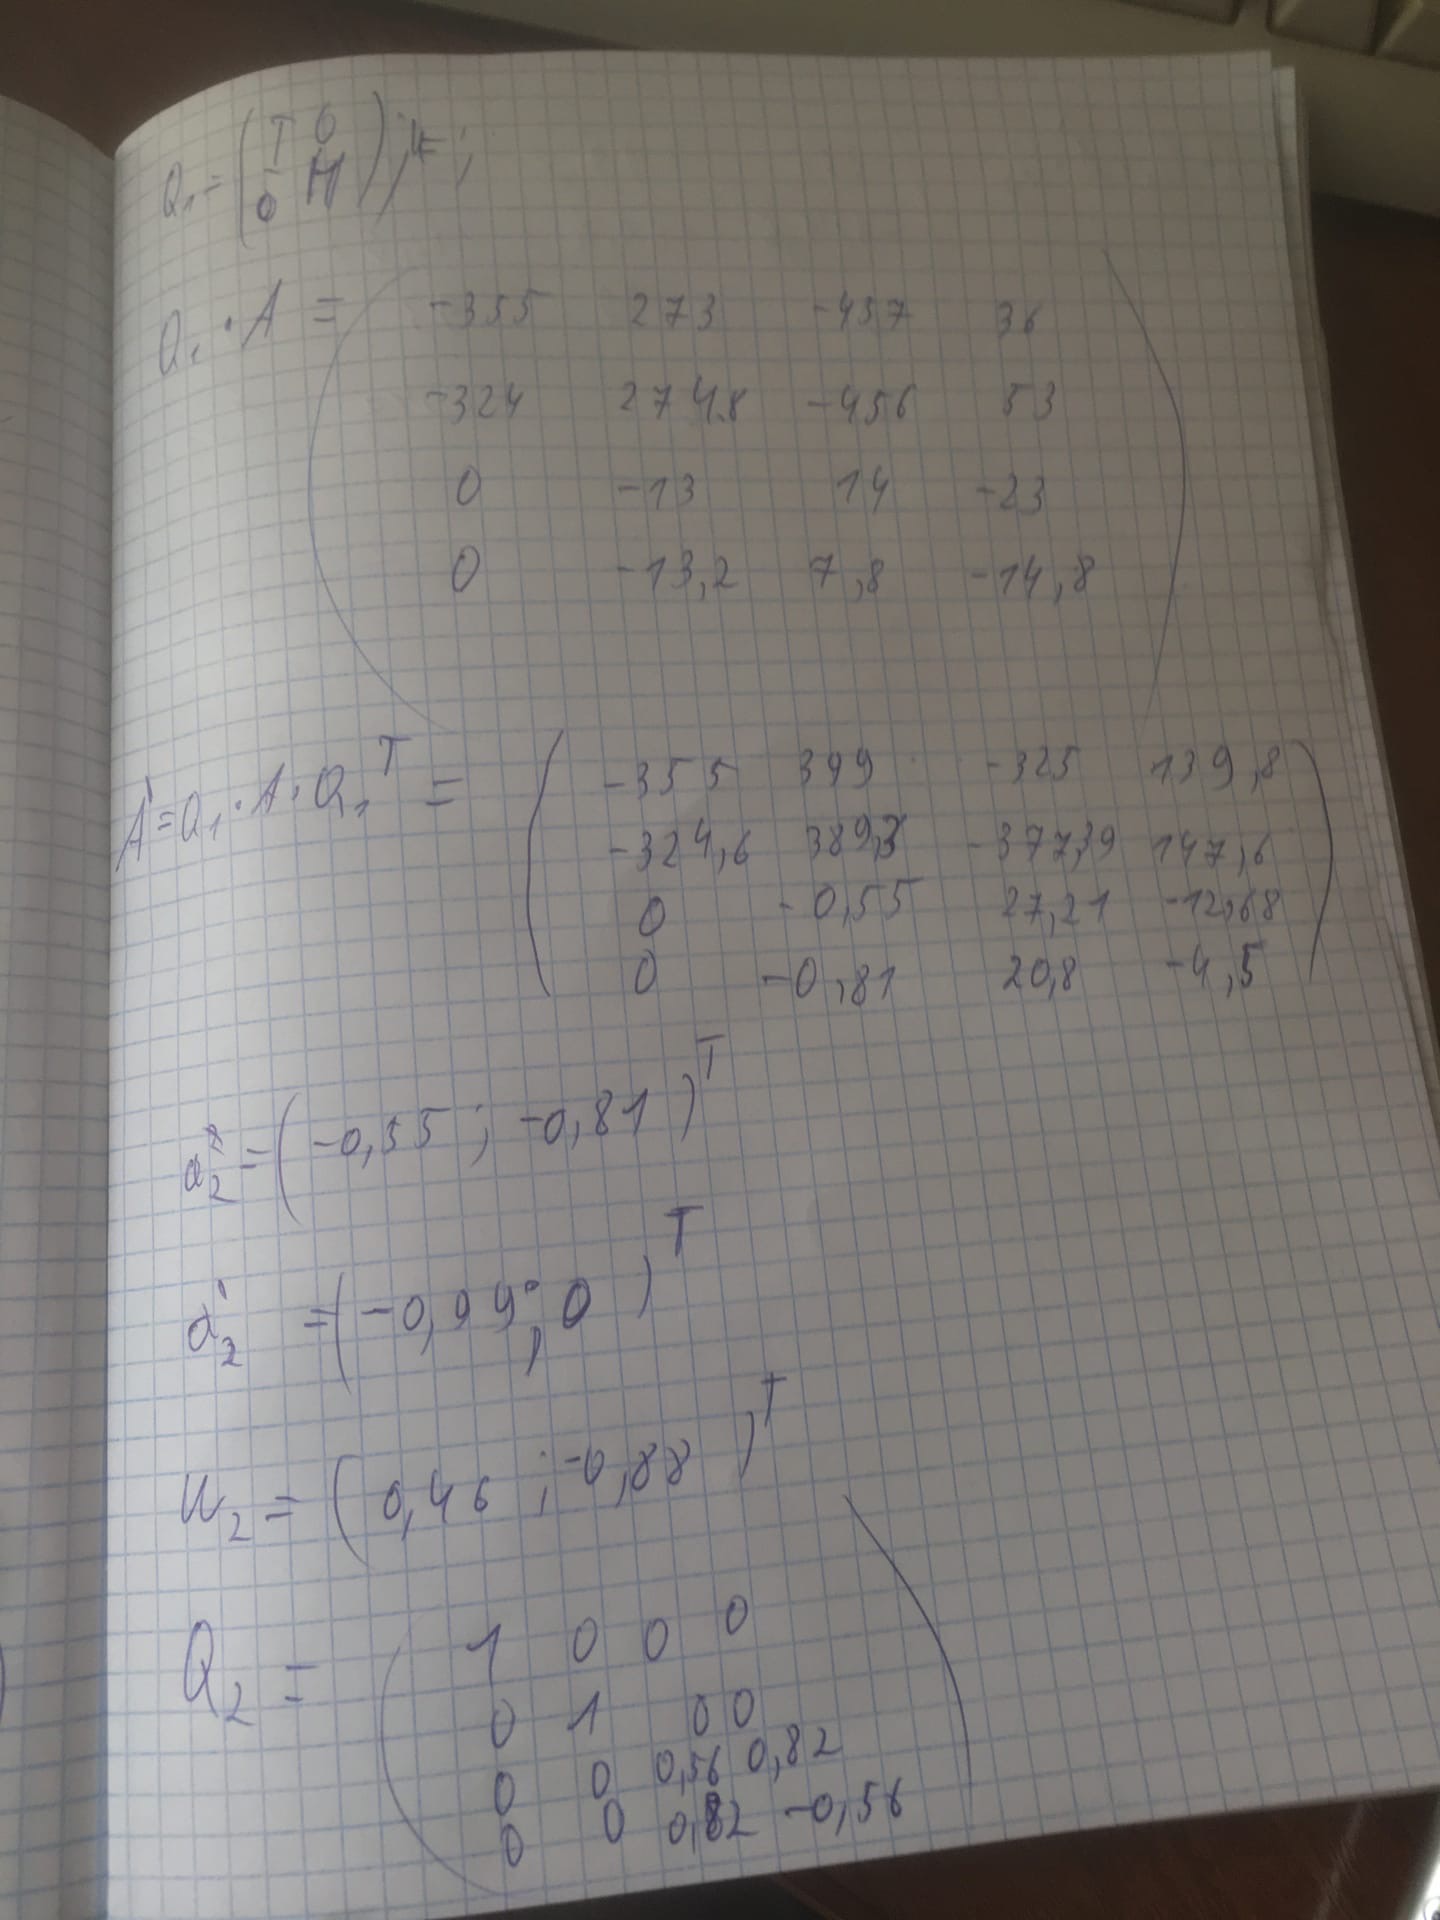 Q₁ = ( I 0
0 H ) ;
Q₁ · A = ( -355 273 -457 36
-324 274,8 -456 53
0 -13 14 -23
0 -13,2 7,8 -14,8 )
A' = Q₁ · A · Q₁ᵀ = ( -355 399 -325 139,8
-324,6 389,3 -377,39 147,6
0 -0,55 27,21 -12,68
0 -0,81 20,8 -4,5 )
= ( -0,55 ; -0,81 )ᵀ
a'₂ = ( -0,99 ; 0 )ᵀ
u₂ = ( 0,46 ; -0,88 )ᵀ
Q₂ = ( 1 0 0 0
0 1 0 0
0 0 0,56 0,82
0 0 0,82 -0,56 )